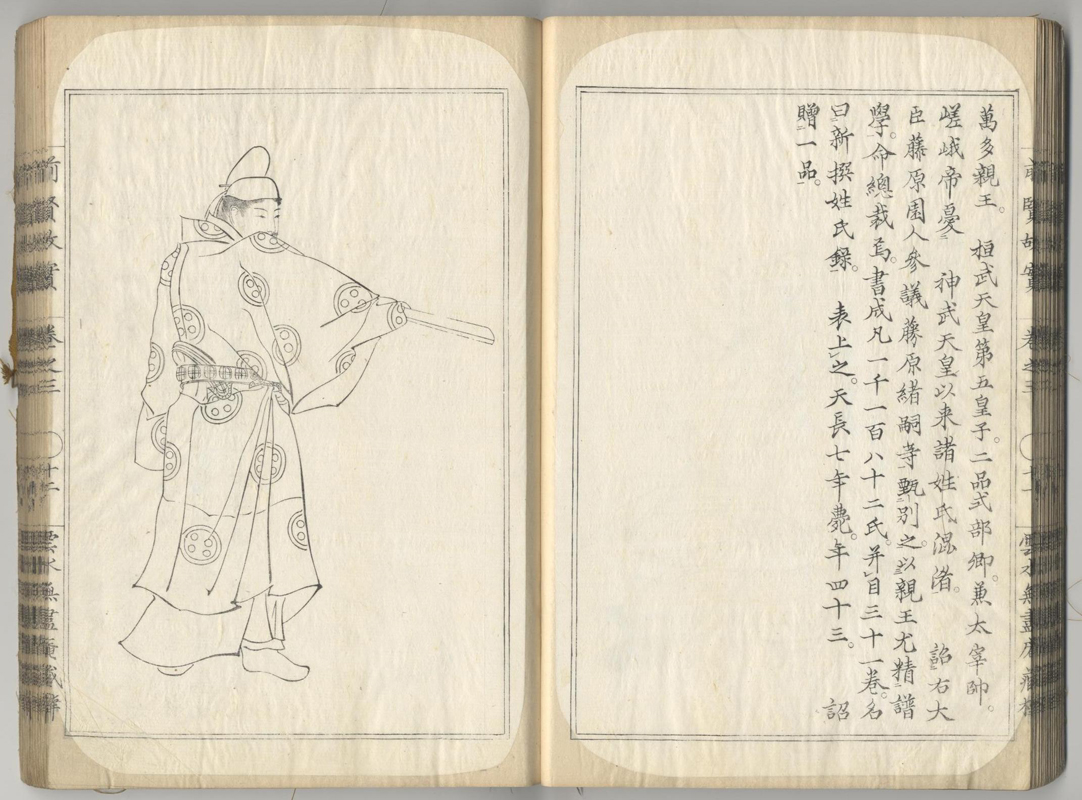 萬多親王。 桓武天皇第五皇子。二品式部卿。兼太宰帥。
嵯峨帝憂 神武天皇以来諸姓氏混淆。 詔右大
臣藤原園人參議藤原緒嗣等甄別之。以親王尤精譜
學。命總裁焉。書成凡一千一百八十二氏。并目三十一卷。名
曰新撰姓氏錄。 表上之。天長七年薨。年四十三。 詔
贈一品。
前賢故實 卷之三
雲水無盡庵藏